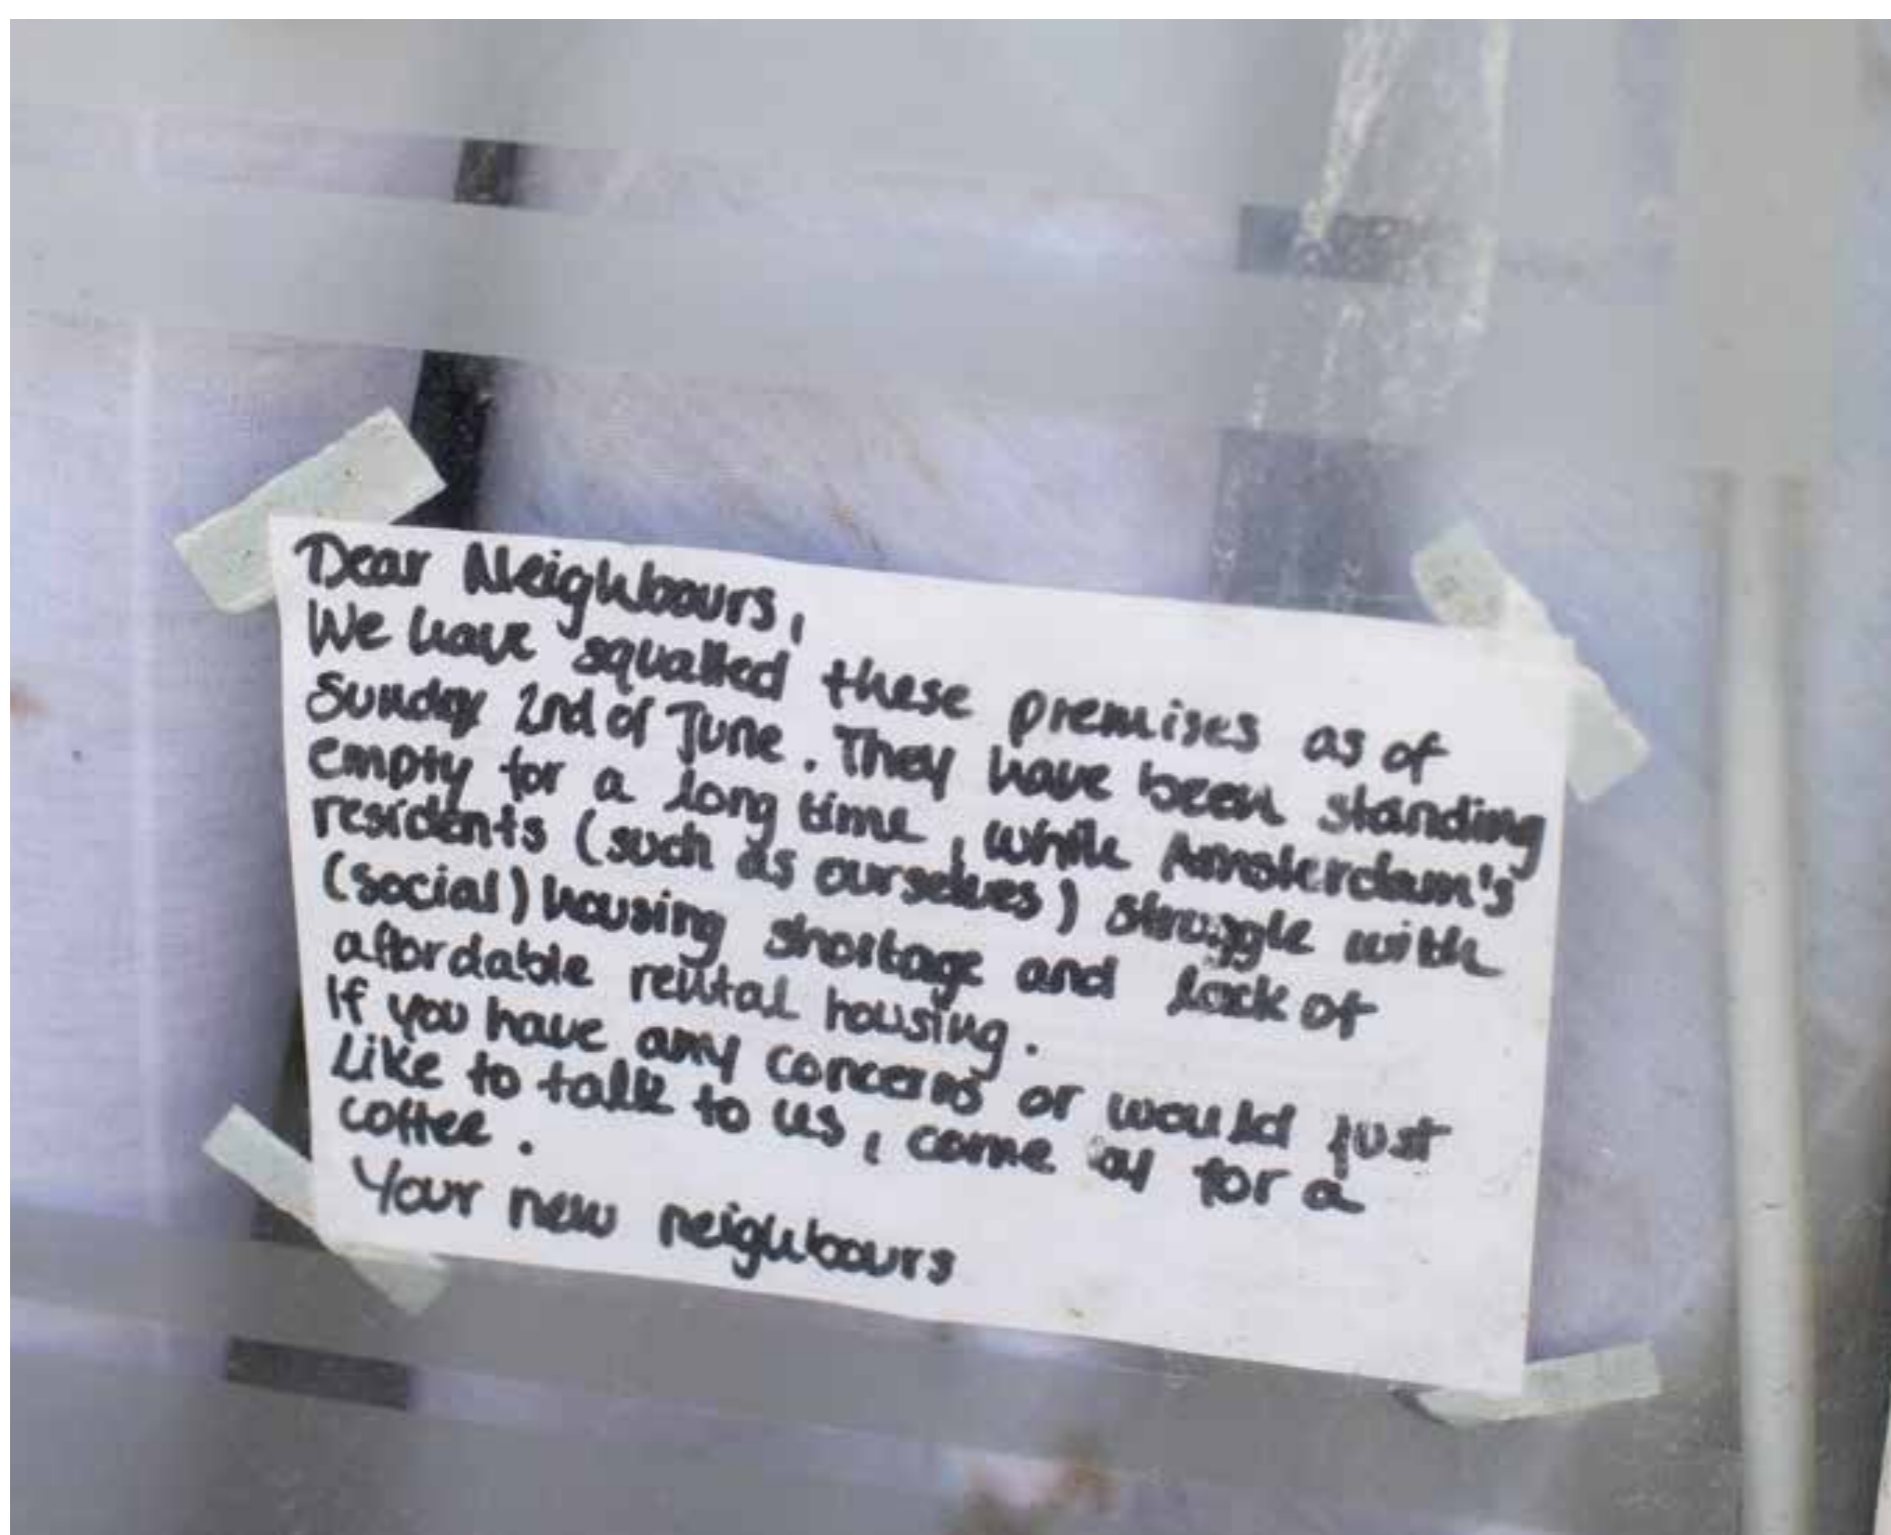 Dear Neighbours,
We have squatted these premises as of
Sunday 2nd of June. They have been standing
empty for a long time, while Amsterdam's
residents (such as ourselves) struggle with
(social) housing shortage and lack of
affordable rental housing.
If you have any concerns or would just
like to talk to us, come by for a
coffee.
Your new neighbours